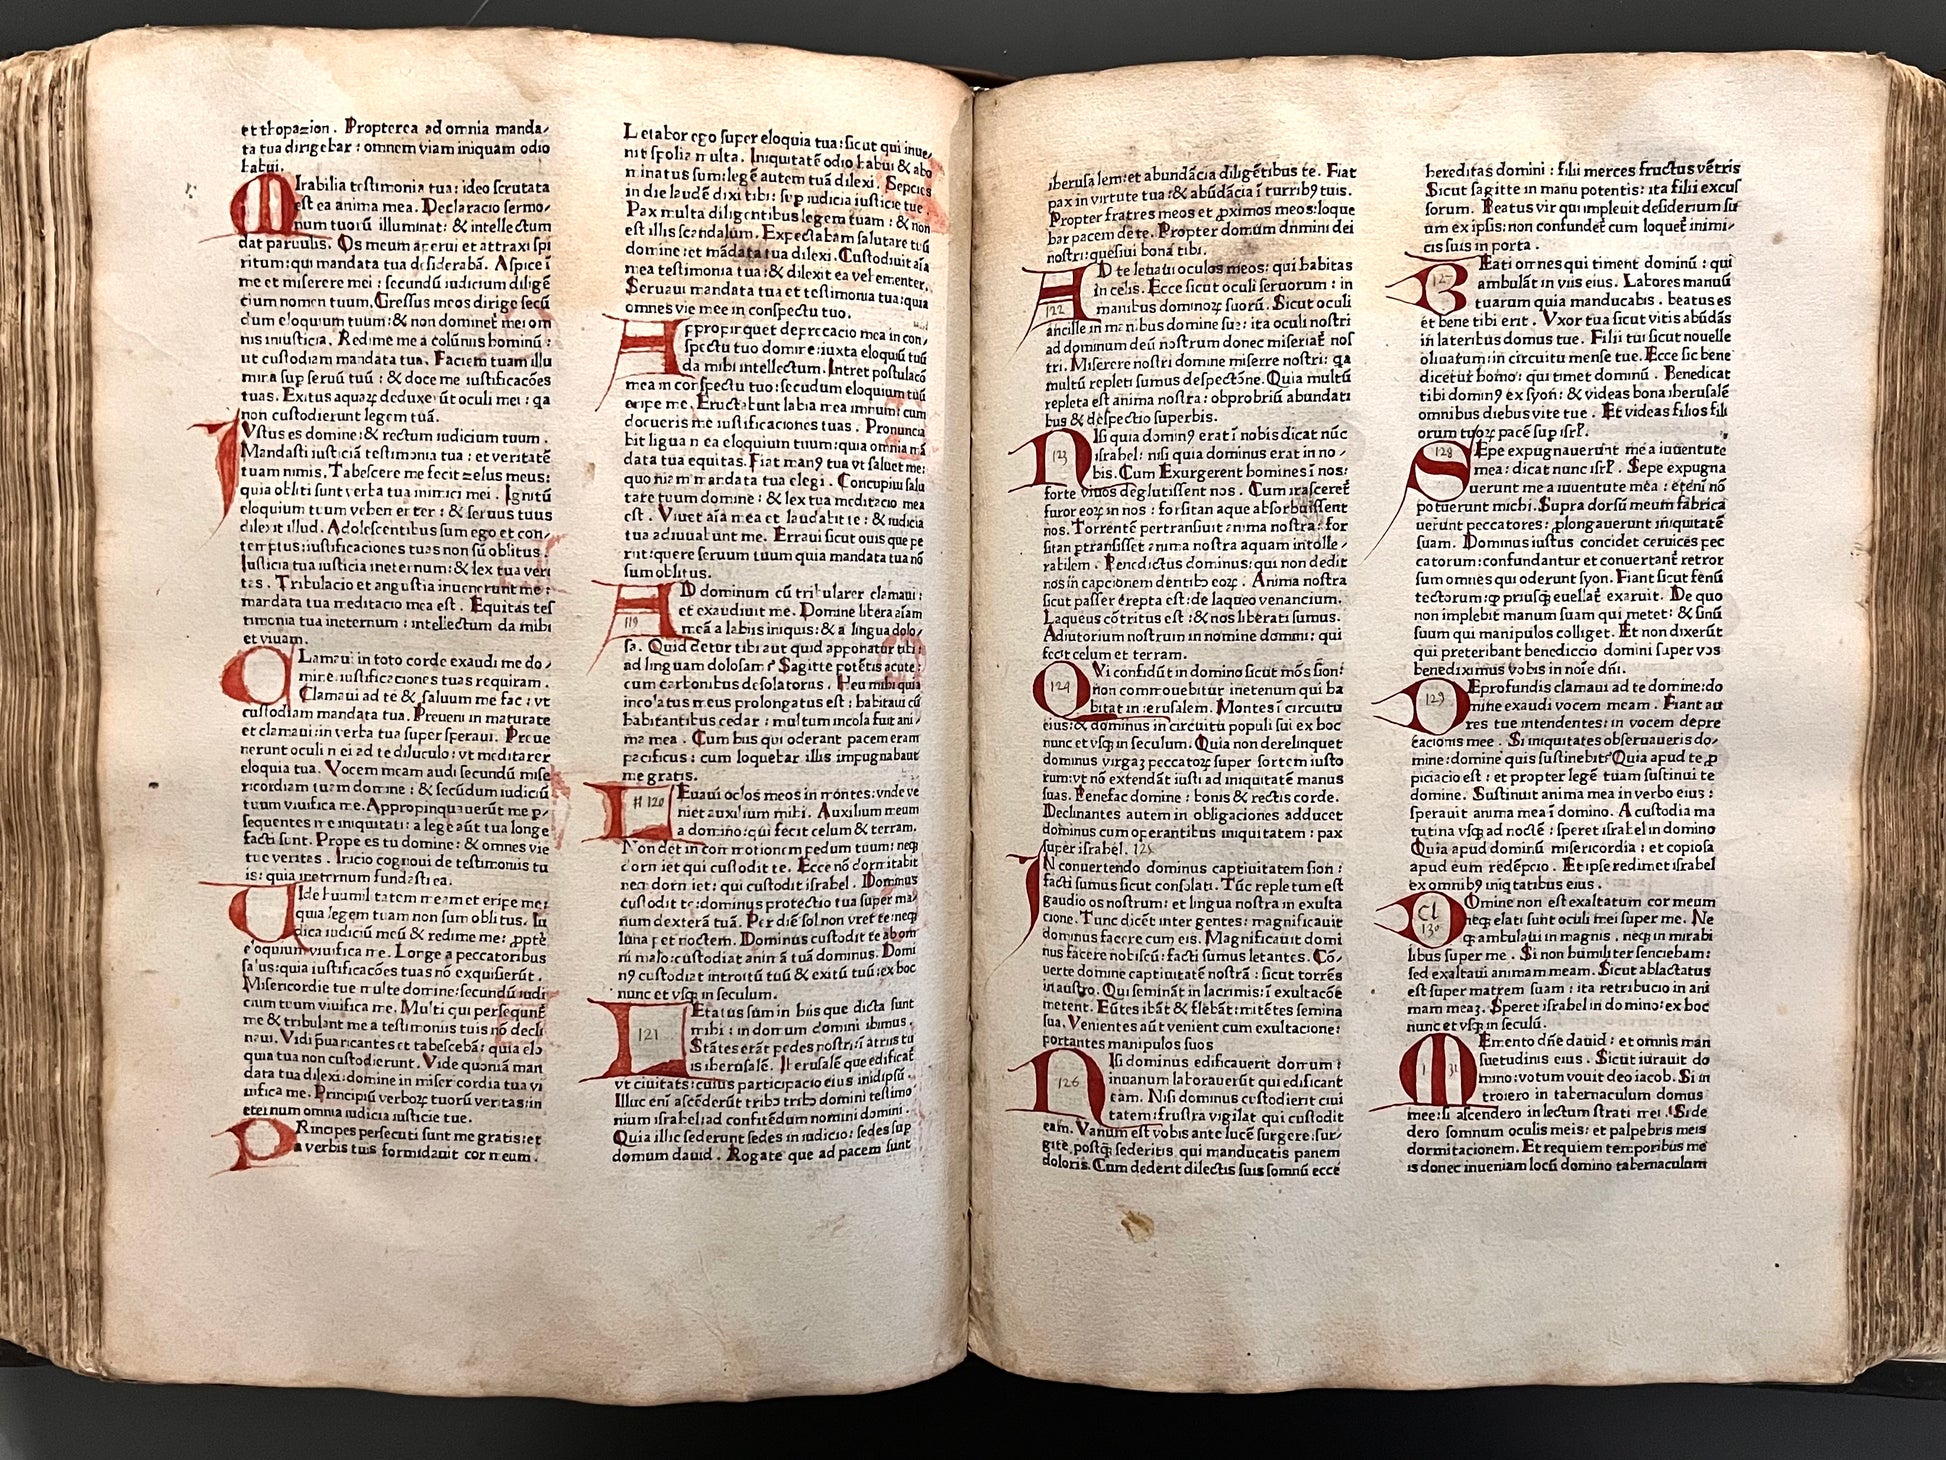 et thopazion. Propterea ad omnia manda/
ta tua dirigebar : omnem viam iniquam odio
habui.
MIrabilia testimonia tua: ideo scrutata
est ea anima mea. Declaracio sermo/
num tuorū illuminat: & intellectum
dat paruulis. Os meum aperui et attraxi spi
ritum: qui mandata tua desiderabā. Aspice ī
me et miserere mei : secundū iudicium diligē
tium nomen tuum. Gressus meos dirige secū
dum eloquium tuum: & non dominet mei om
nis iniusticia. Redime me a calūniis hominū :
ut custodiam mandata tua. Faciem tuam illu
mina sup seruū tuū : & doce me iustificacōes
tuas. Exitus aquaꝝ deduxerūt oculi mei : qa
non custodierunt legem tuā.
IVstus es domine: & rectum iudicium tuum.
Mandasti iusticiā testimonia tua : et veritatē
tuam nimis. Tabescere me fecit zelus meus:
quia obliti sunt verba tua inimici mei. Ignitū
eloquium tuum vehementer : & seruus tuus
dilexit illud. Adolescentulus sum ego et con/
temptus: iustificaciones tuas non sū oblitus.
Iusticia tua iusticia ineternum: & lex tua veri
tas. Tribulacio et angustia inuenerunt me:
mandata tua meditacio mea est. Equitas tes
timonia tua ineternum : intellectum da mihi
et viuam.
CLamaui in toto corde exaudi me do/
mine. iustificaciones tuas requiram.
Clamaui ad te & saluum me fac : vt
custodiam mandata tua. Preueni in maturate
et clamaui: in verba tua super speraui. Preue
nerunt oculi mei ad te diluculo: vt meditarer
eloquia tua. Vocem meam audi secundū mise
ricordiam tuam domine : & secūdum iudiciū
tuum viuifica me. Appropinquauerūt me p/
sequentes me iniquitati: a lege aūt tua longe
facti sunt. Prope es tu domine: & omnes vie
tue veritas. Inicio cognoui de testimoniis tu
is: quia ineternum fundasti ea.
VIde humilitatem meam et eripe me:
quia legem tuam non sum oblitus. Iu
dica iudiciū meū & redime me: ꝓpte
eloquium viuifica me. Longe a peccatoribus
salus: quia iustificacōes tuas nō exquisierūt.
Misericordie tue multe domine: secundū iudi
cium tuum viuifica me. Multi qui persequunt
me & tribulant me a testimoniis tuis nō decli
naui. Vidi p̄uaricantes et tabescebā: quia elo
quia tua non custodierunt. Vide quoniā man
data tua dilexi: domine in misericordia tua vi
uifica me. Principiū verboꝝ tuorū veritas: in
eternum omnia iudicia iusticie tue.
PRincipes persecuti sunt me gratis: et
a verbis tuis formidauit cor meum.
Letabor ego super eloquia tua: sicut qui inue/
nit spolia multa. Iniquitatē odio habui & abo
minatus sum: legē autem tuā dilexi. Sepcies
in die laudē dixi tibi: sup iudicia iusticie tue.
Pax multa diligentibus legem tuam : & non
est illis scandalum. Expectabam salutare tuū
domine: et mādata tua dilexi. Custodiuit aīa
mea testimonia tua: & dilexit ea vehementer.
Seruaui mandata tua et testimonia tua: quia
omnes vie mee in conspectu tuo.
APpropinquet deprecacio mea in con/
spectu tuo domine: iuxta eloquiū tuū
da mihi intellectum. Intret postulacō
mea in conspectu tuo: secudum eloquium tuū
eripe me. Eructabunt labia mea imnum: cum
docueris me iustificaciones tuas. Pronuncia
bit ligua mea eloquium tuum: quia omnia mā
data tua equitas. Fiat manꝰ tua vt saluet me:
quoniam mandata tua elegi. Concupiui salu
tare tuum domine : & lex tua meditacio mea
est. Viuet aīa mea et laudabit te : & iudicia
tua adiuuabunt me. Erraui sicut ouis que pe
riit: quere seruum tuum quia mandata tua nō
sum oblitus.
AD dominum cū tribularer clamaui:
et exaudiuit me. Domine libera aīam
119 meā a labiis iniquis: & a lingua dolo/
sa. Quid detur tibi aut quid apponatur tibi:
ad linguam dolosam? Sagitte potētis acute:
cum carbonibus desolatoriis. Heu mihi quia
incolatus meus prolongatus est : habitaui cū
habitantibus cedar : multum incola fuit ani/
ma mea. Cum hiis qui oderant pacem eram
pacificus : cum loquebar illis impugnabant
me gratis.
LEuaui oclos meos in montes: vnde ve
120 niet auxilium mihi. Auxilium meum
a domino: qui fecit celum & terram.
Non det in commotionem pedum tuum: neqꝫ
dormiet qui custodit te. Ecce nō dormitabit
neqꝫ dormiet: qui custodit israhel. Dominus
custodit te: dominus protectio tua super ma/
num dexterā tuā. Per diē sol non vret te: neqꝫ
luna per noctem. Dominus custodit te ab om
ni malo: custodiat animā tuā dominus. Domi
nꝰ custodiat introitū tuū & exitū tuū: ex hoc
nunc et vsqꝫ in seculum.
LEtatus sum in hiis que dicta sunt
mihi : in domum domini ibimus.
121 Stātes erāt pedes nostri: ī atriis tu
is iherusalē. Iherusalē que edificat
vt ciuitats: cuius participacio eius inidipsū.
Illuc enī ascēderūt tribꝰ tribꝰ domini testimo
nium israhel: ad confitēdum nomini domini.
Quia illic sederunt sedes in iudicio: sedes sup
domum dauid. Rogate que ad pacem sunt
iherusalem: et abundācia diligētibus te. Fiat
pax in virtute tua: & abūdācia ī turribꝰ tuis.
Propter fratres meos et ꝓximos meos: loque
bar pacem de te. Propter domum domini dei
nostri: quesiui bona tibi.
AD te leuaui oculos meos: qui habitas
in celis. Ecce sicut oculi seruorum : in
122 manibus dominoꝝ suorū. Sicut oculi
ancille in manibus domine sue: ita oculi nostri
ad dominum deū nostrum donec misereat nos
tri. Miserere nostri domine miserre nostri: qa
multū repleti sumus despectōne. Quia multū
repleta est anima nostra: obprobriū abundati
bus & despectio superbis.
NIsi quia dominꝰ erat ī nobis dicat nūc
123 israhel: nisi quia dominus erat in no/
bis. Cum Exurgerent homines ī nos:
forte viuos deglutissent nos. Cum irasceret
furor eoꝝ in nos : forsitan aque absorbuissent
nos. Torrentē pertransiuit anima nostra: for
sitan ptransisset anima nostra aquam intolle/
rabilem. Benedictus dominus: qui non dedit
nos in capcionem dentibꝰ eoꝝ. Anima nostra
sicut passer erepta est: de laqueo venancium.
Laqueus cōtritus est : & nos liberati sumus.
Adiutorium nostrum in nomine domini: qui
fecit celum et terram.
QVi confidūt in domino sicut mōs sion:
124 non commouebitur inetenum qui ha
bitat in ierusalem. Montes ī circuitu
eius: & dominus in circuitu populi sui ex hoc
nunc et vsqꝫ in seculum. Quia non derelinquet
dominus virgaꝫ peccatoꝝ super sortem iusto
rum: vt nō extendāt iusti ad iniquitatē manus
suas. Benefac domine : bonis & rectis corde.
Declinantes autem in obligaciones adducet
dominus cum operantibus iniquitatem : pax
super israhel. 125
IN conuertendo dominus captiuitatem sion :
facti sumus sicut consolati. Tūc repletum est
gaudio os nostrum: et lingua nostra in exulta
cione. Tunc dicēt inter gentes: magnificauit
dominus facere cum eis. Magnificauit domi
nus facere nobiscū: facti sumus letantes. Cō/
uerte domine captiuitatē nostrā : sicut torrēs
in austro. Qui semināt in lacrimis: ī exultacōe
metent. Eūtes ibāt & flebāt: mitētes semina
sua. Venientes aūt venient cum exultacione:
portantes manipulos suos
NIsi dominus edificauerit domum :
126 inuanum laborauerūt qui edificant
eam. Nisi dominus custodierit ciui
tatem: frustra vigilat qui custodit
eam. Vanum est vobis ante lucē surgere: sur/
gite postqꝫ sederitis, qui manducatis panem
doloris. Cum dederit dilectis suis somnū ecce
hereditas domini : filii merces fructus vētris
Sicut sagitte in manu potentis: ita filii excus
sorum. Beatus vir qui impleuit desiderium su
um ex ipsis: non confundet cum loquet inimi/
cis suis in porta.
BEati omnes qui timent dominū : qui
127 ambulāt in viis eius. Labores manuū
tuarum quia manducabis. beatus es
et bene tibi erit. Vxor tua sicut vitis abūdās
in lateribus domus tue. Filii tui sicut nouelle
oliuatum: in circuitu mense tue. Ecce sic bene
dicetur homo: qui timet dominū. Benedicat
tibi dominꝰ ex syon: & videas bona iherusalē
omnibus diebus vite tue. Et videas filios fili
orum tuoꝝ pacē sup isrl.
SEpe expugnauerunt me a iuuentute
128 mea: dicat nunc isrl. Sepe expugna
uerunt me a iuuentute mea : etenī nō
potuerunt michi. Supra dorsū meum fabrica
uerunt peccatores: ꝓlongauerunt iniquitatē
suam. Dominus iustus concidet ceruices pec
catorum: confundantur et conuertant retror
sum omnes qui oderunt syon. Fiant sicut fenū
tectorum: qꝫ priusqꝫ euellat exaruit. De quo
non implebit manum suam qui metet: & sinū
suum qui manipulos colliget. Et non dixerūt
qui preteribant benediccio domini super vos
benediximus vobis in noīe dn̄i.
DEprofundis clamaui ad te domine: do
129 mine exaudi vocem meam. Fiant au
res tue intendentes: in vocem depre
cacionis mee. Si iniquitates obseruaueris do/
mine: domine quis sustinebit? Quia apud te ꝓ
piciacio est : et propter legē tuam sustinui te
domine. Sustinuit anima mea in verbo eius :
sperauit anima mea ī domino. A custodia ma
tutina vsqꝫ ad noctē : speret israhel in domino
Quia apud dominū misericordia : et copiosa
apud eum redēpcio. Et ipse redimet israhel
ex omnibꝰ iniqtatibus eius.
DOmine non est exaltatum cor meum
Cl neqꝫ elati sunt oculi mei super me. Ne
130 qꝫ ambulaui in magnis, neqꝫ in mirabi
libus super me. Si non humiliter senciebam:
sed exaltaui animam meam. Sicut ablactatus
est super matrem suam : ita retribucio in ani
mam meaꝫ. Speret israhel in domino: ex hoc
nunc et vsqꝫ in seculū.
MEmento dn̄e dauid: et omnis man
131 suetudinis eius. Sicut iurauit do
mino: votum vouit deo iacob. Si in
troiero in tabernaculum domus
mee: si ascendero in lectum strati mei. Si de
dero somnum oculis meis: et palpebris meis
dormitacionem. Et requiem temporibus me
is donec inueniam locū domino tabernaculum